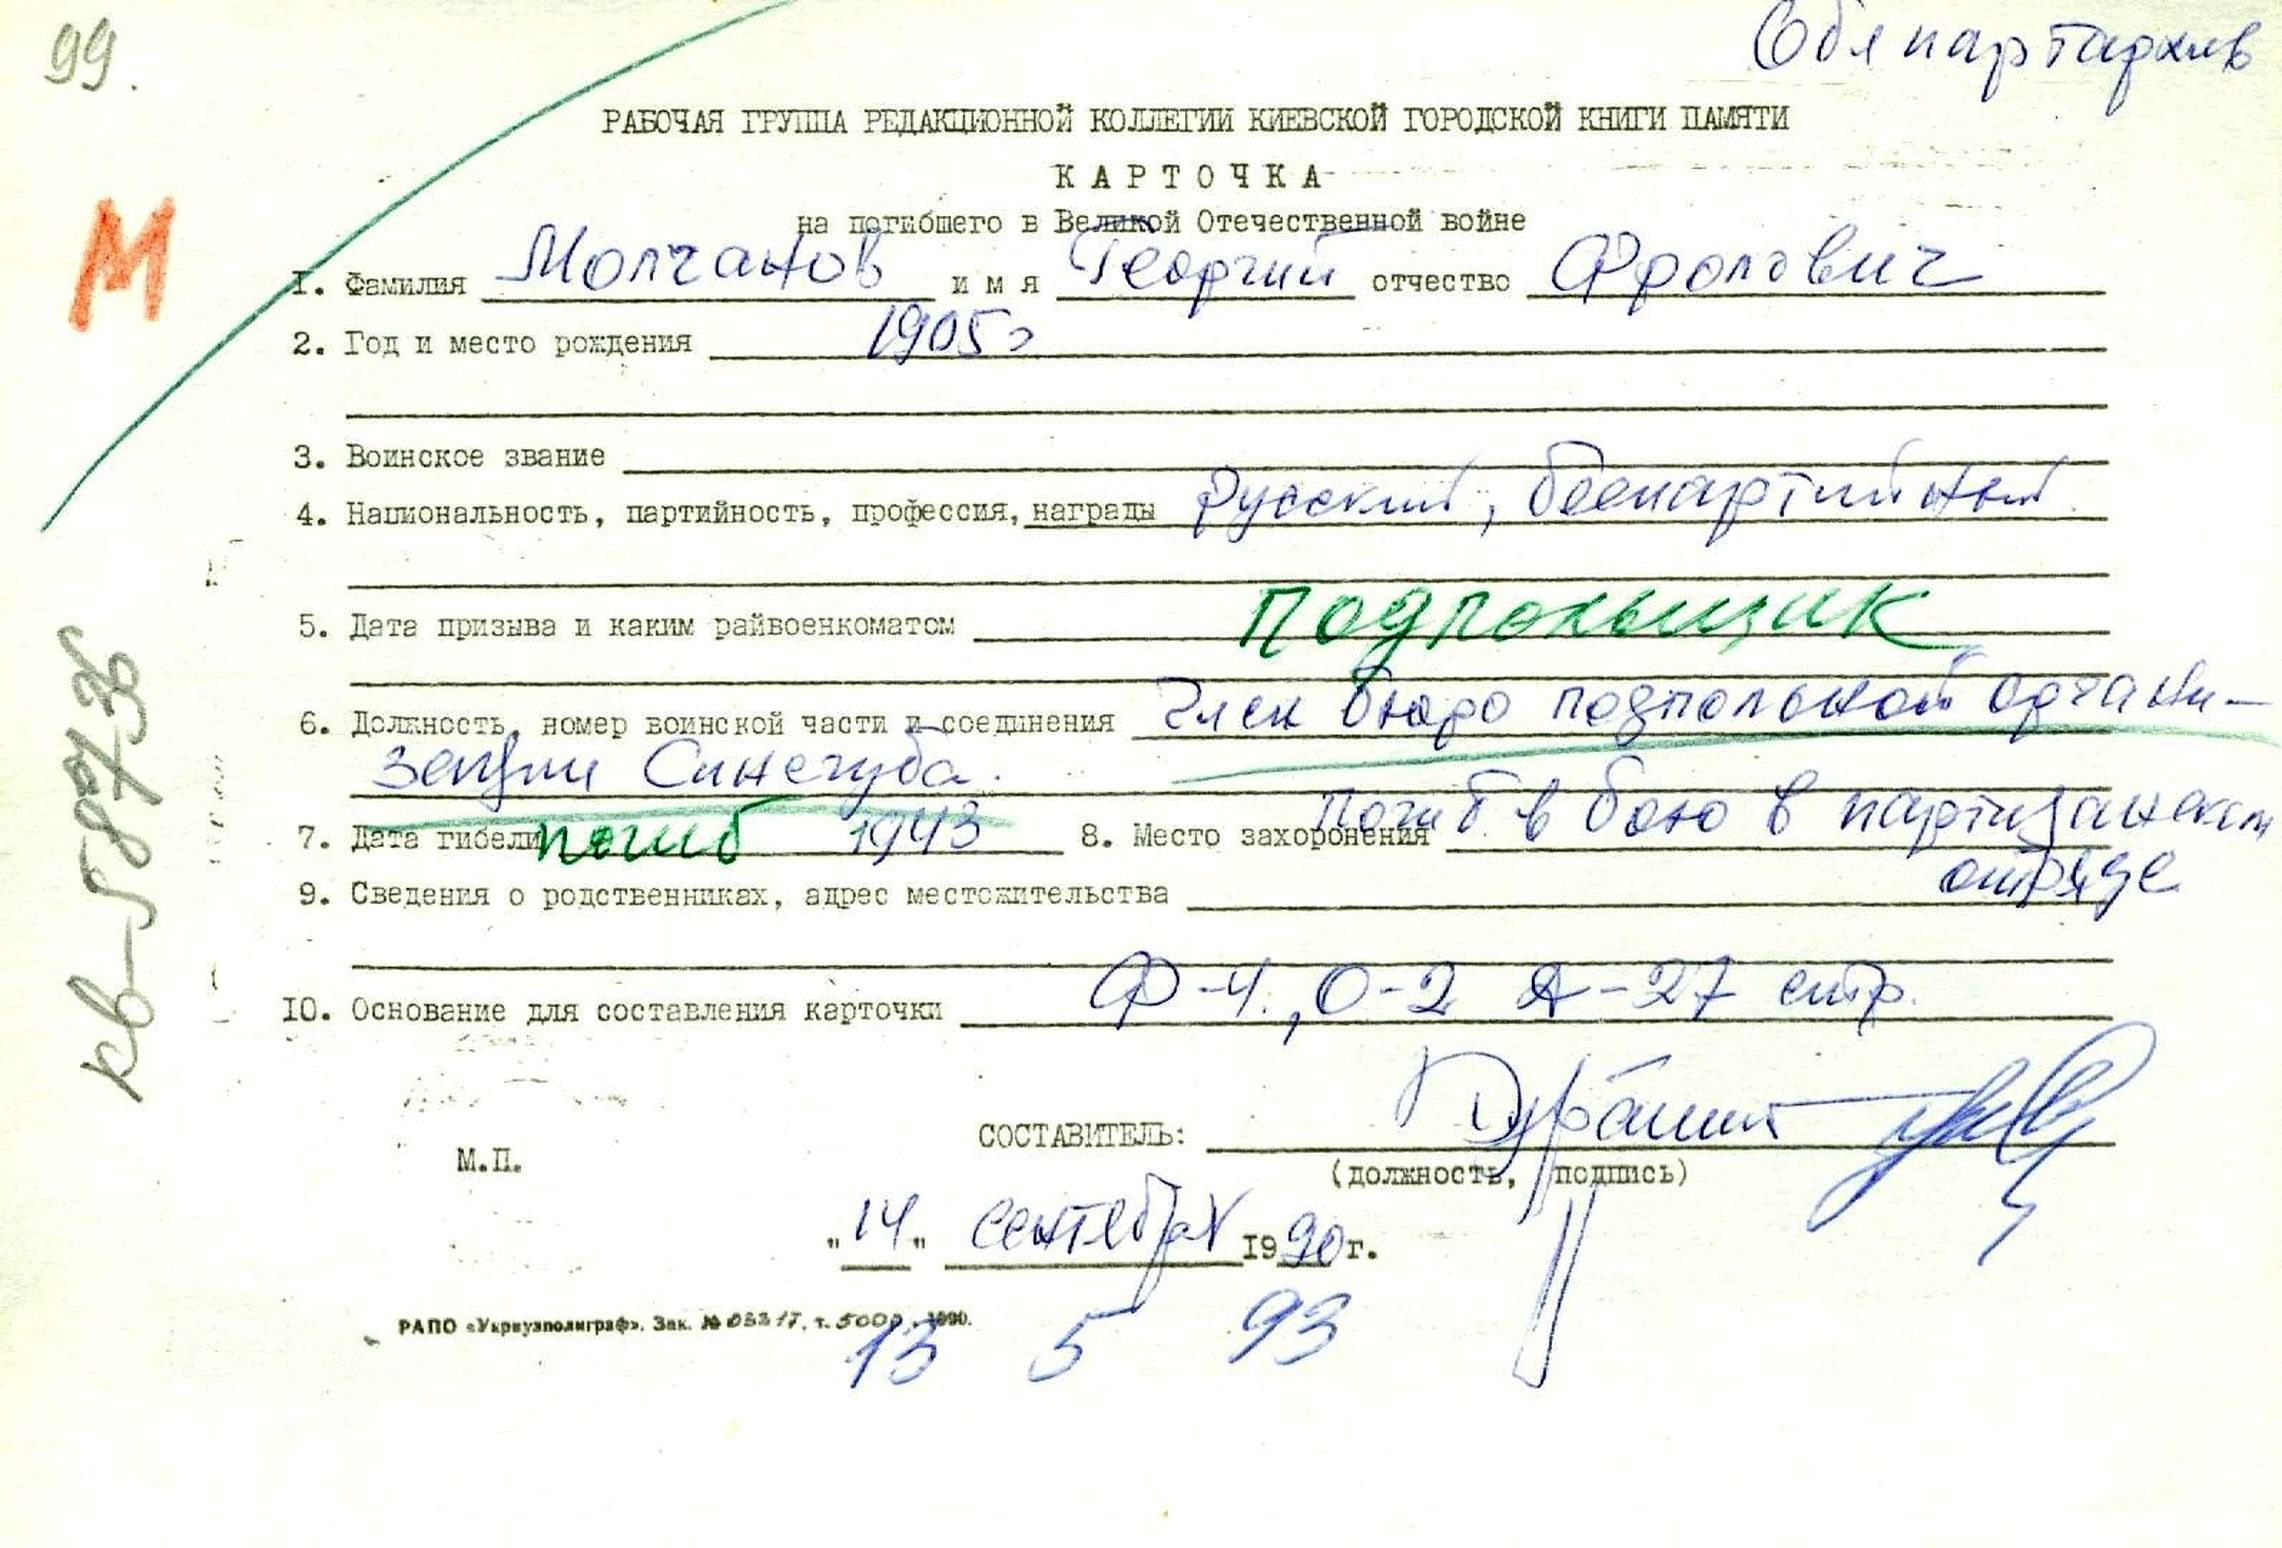 99.
Обл партархив
РАБОЧАЯ ГРУППА РЕДАКЦИОННОЙ КОЛЛЕГИИ КИЕВСКОЙ ГОРОДСКОЙ КНИГИ ПАМЯТИ
КАРТОЧКА
на погибшего в Великой Отечественной войне
М
1. Фамилия Молчанов имя Георгий отчество Фролович
2. Год и место рождения 1905г
3. Воинское звание
4. Национальность, партийность, профессия, награды Русский, беспартийный.
5. Дата призыва и каким райвоенкоматом Подпольщик
6. Должность, номер воинской части и соединения Член бюро подпольной органи-
зации Синегуба.
7. Дата гибели погиб 1943 8. Место захоронения Погиб в бою в партизанском
отряде
9. Сведения о родственниках, адрес местожительства
10. Основание для составления карточки Ф-4., О-2 Д-27 стр.
кв-58736
СОСТАВИТЕЛЬ:
М.П.
(должность, подпись)
"14" сентября 1990г.
РАПО «Укрвузполиграф». Зак. № 03217, т. 5000. 1990.
13 5 93